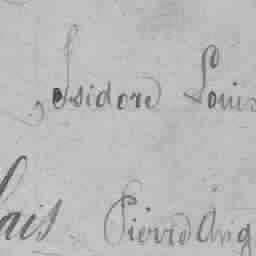 Isidore Louis
lais Pierre Aug